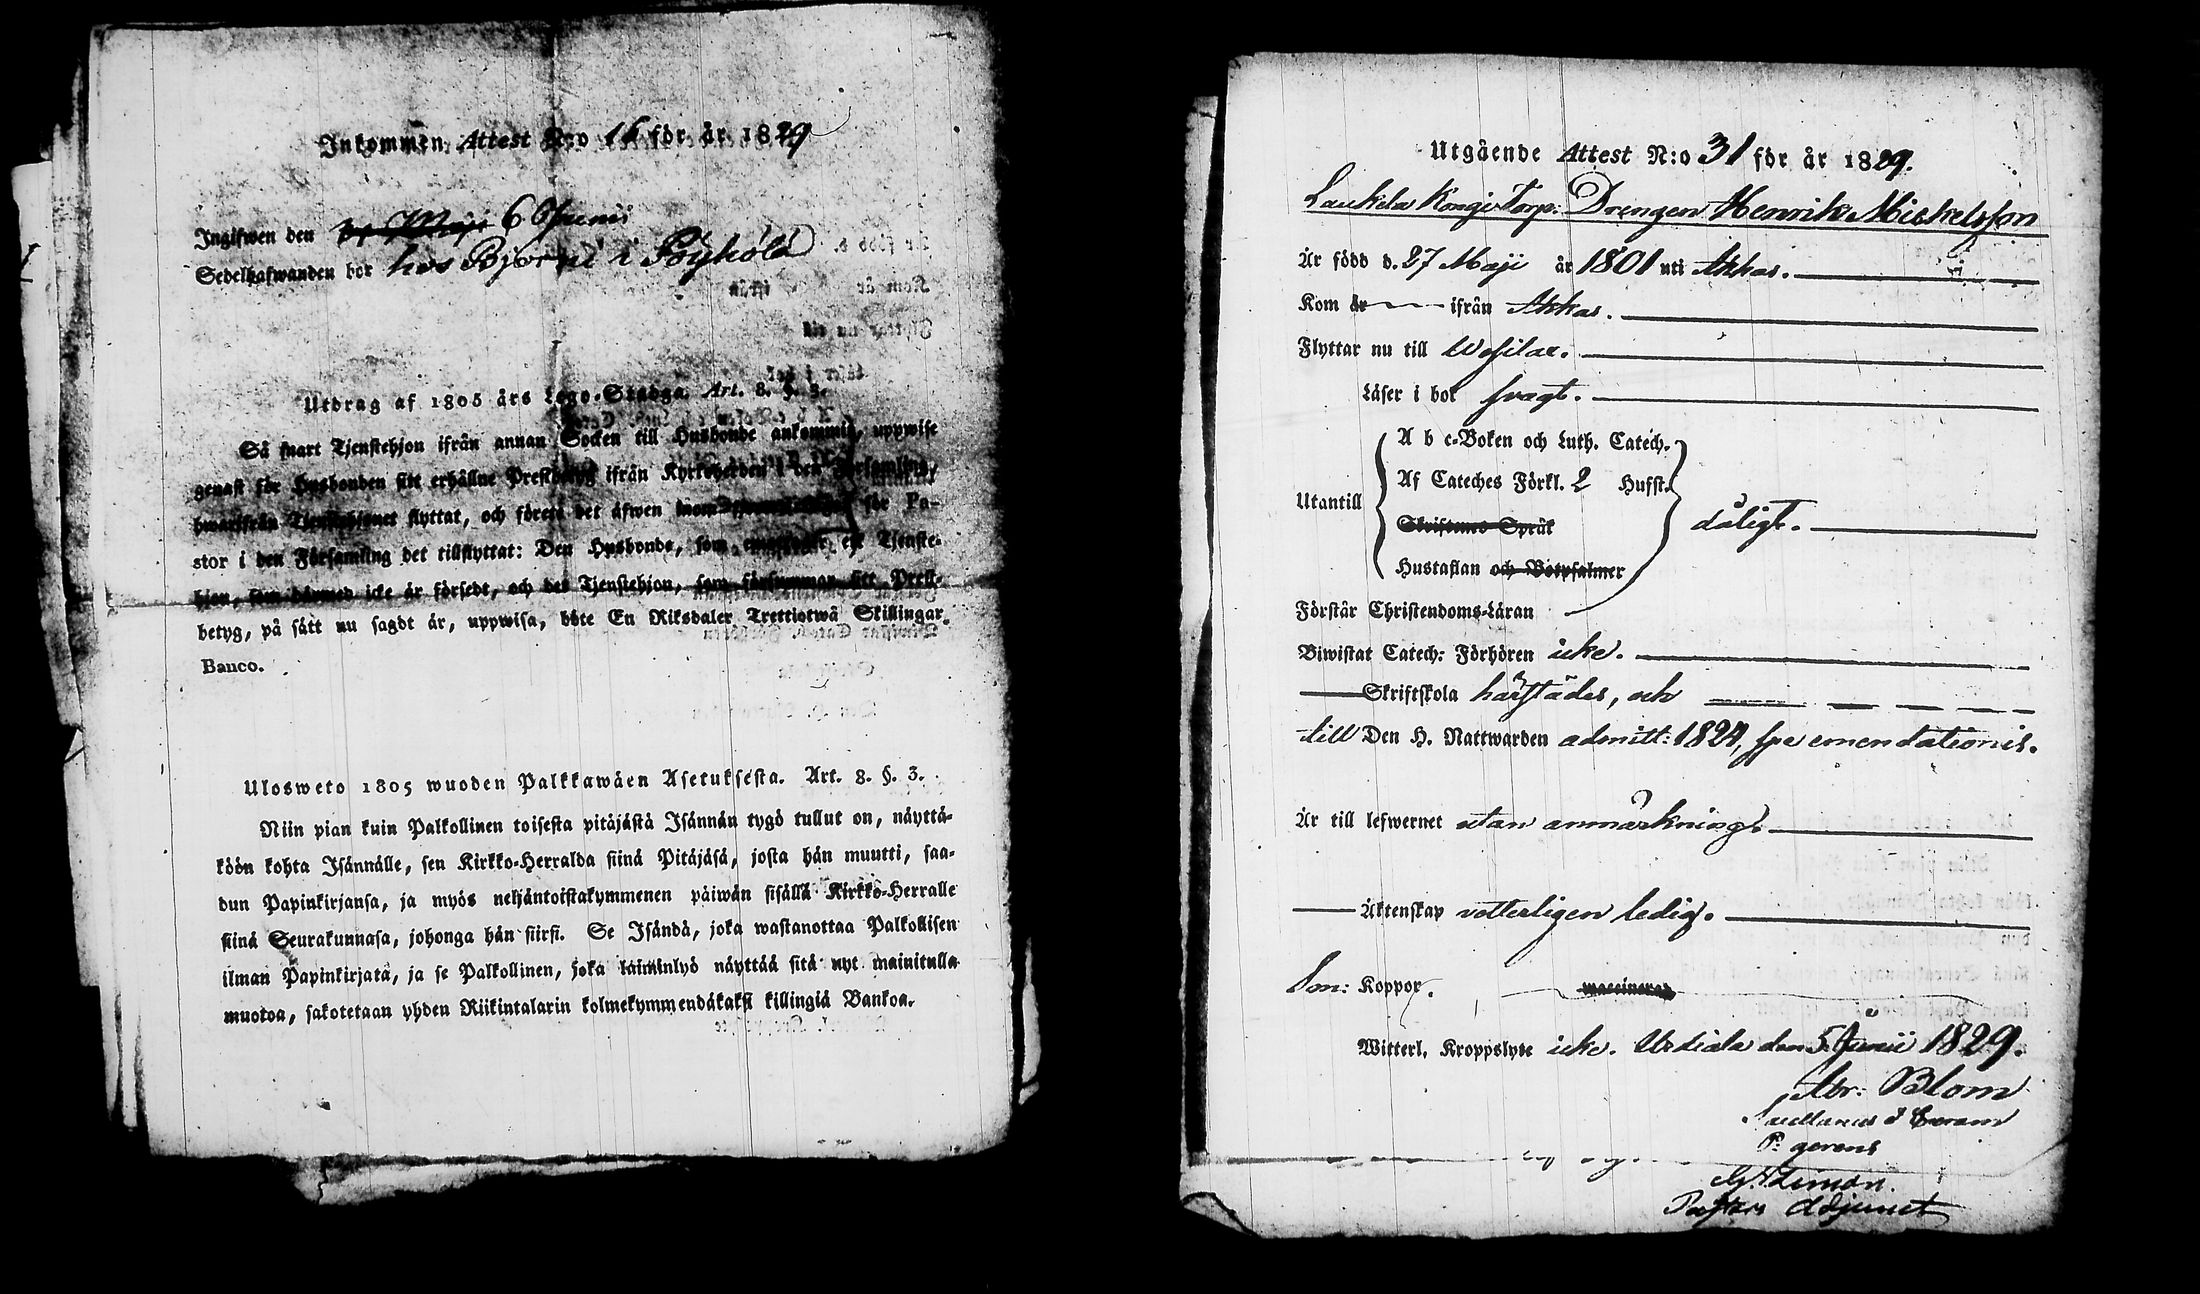 Inkommen Attest N:o 16 för år 1829
Ingifwen den 6 Junii
Sedelhafwanden bor hos Björni i Pöyhölä
Utdrag af 1805 års Lego-Stadga Art. 8. §. 3.
Så snart Tjenstehjon ifrån annan Socken till Husbonde ankommit, uppwise
genast för Husbonden sitt erhållne Prestbetyg ifrån Kyrkoherden i den Församling,
hwarifrån Tjenstehjonet flyttat, och förete det äfwen inom för Pa-
stor i den Församling det tillflyttat: Den Husbonde, som emottager ett Tjenste-
hjon, som härmed icke är försedt, och det Tjenstehjon, som försummar sitt Prest-
betyg, på sätt nu sagdt är, uppwisa, böte En Riksdaler Trettiotwå Skillingar
Banco.
Ulosweto 1805 wuoden Palkkawäen Asetuksesta. Art. 8. §. 3.
Niin pian kuin Palkollinen toisesta pitäjästä Isännän tygö tullut on, näyttä-
köön kohta Isännälle, sen Kirkko-Herralda siinä Pitäjäsä, josta hän muutti, saa-
dun Papinkirjansa, ja myös neljäntoistakymmenen päiwän sisällä Kirkko-Herralle
siinä Seurakunnasa, johonga hän siirsi. Se Isändä, joka wastanottaa Palkollisen
ilman Papinkirjata, ja se Palkollinen, joka laiminlyö näyttää sitä nyt mainitulla
muotoa, sakotetaan yhden Riikintalarin kolmekymmendäkaksi killingiä Bankoa.
Utgående Attest N:o 31 för år 1829.
Laukela Kongi Torp: Drengen Henrik Mickelsson
Är född d. 27 Maji år 1801 uti Akkas.
Kom år ifrån Akkas.
Flyttar nu till Wesilax.
Läser i bok svagt.
A b c-Boken och Luth. Catech.
Af Cateches Förkl. 2 Hufst.
Utantill Skriftenes Språk dåligt.
Hustaflan och Botpsalmer
Förstår Christendoms-Läran
Biwistat Catech: Förhören icke.
Skriftskola härstädes, och
till Den H. Nattwarden admitt: 1824, spe emendationis.
Är till lefwernet utan anmärkning.
Äktenskap vetterligen ledig.
Son: Koppor. vaccinerad
Witterl. Kroppslyte icke. Urdiala den 5 Junii 1829.
Abr: Blom
Sacellanus
P: gerens
Pastors Adjunct